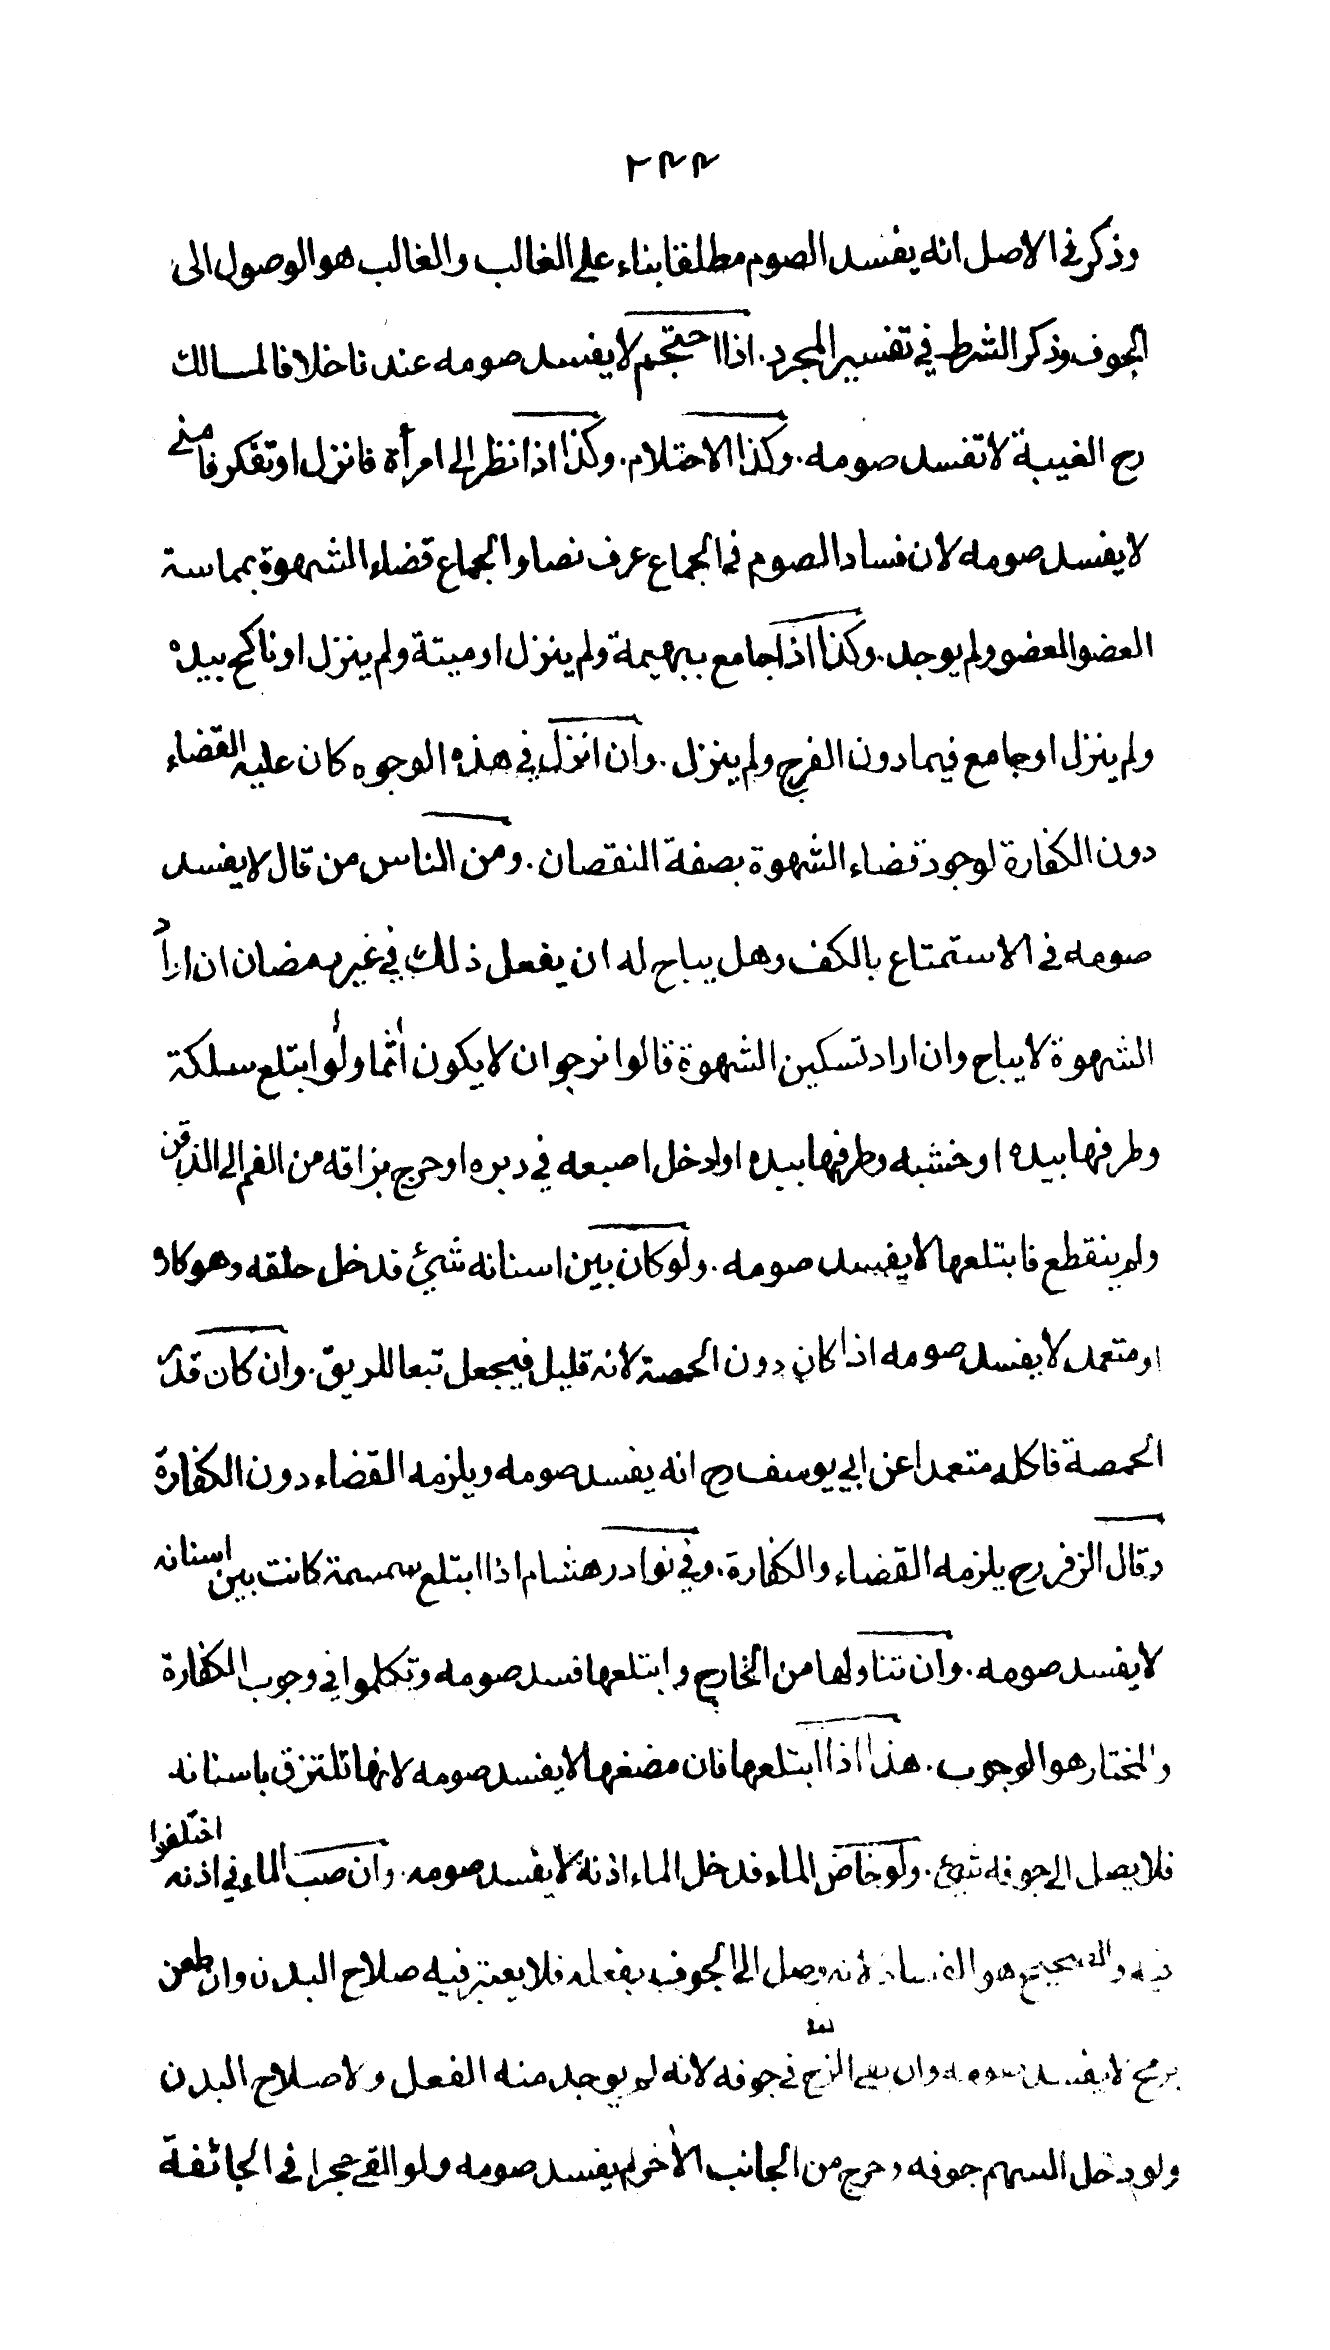 ٢٤٤
وذكر في الاصل انه يفسد الصوم مطلقا بناء على الغالب والغالب هو الوصول الى
الجوف وذكر الشرط في تفسير المجرد. اذا احتجم لا يفسد صومه عندنا خلافا لمالك
رح الغيبة لا تفسد صومه. وكذا الاحتلام. وكذا اذا نظر الى امرأة فانزل او تفكر فامنى
لا يفسد صومه لان فساد الصوم في الجماع عرف نصا والجماع قضاء الشهوة بمماسة
العضو العضو ولم يوجد. وكذا اذا جامع ببهيمة ولم ينزل او ميتة ولم ينزل او ناكح بيده
ولم ينزل او جامع فيما دون الفرج ولم ينزل. وان انزل في هذه الوجوه كان عليه القضاء
دون الكفارة لوجود قضاء الشهوة بصفة النقصان. ومن الناس من قال لا يفسد
صومه في الاستمتاع بالكف وهل يباح له ان يفعل ذلك في غير رمضان ان اراد
الشهوة لا يباح وان اراد تسكين الشهوة قالوا نرجو ان لا يكون آثما ولو ابتلع سلكة
وطرفها بيده او خشبه وطرفها بيده او ادخل اصبعه في دبره او خرج بزاقه من الفم الى الذقن
ولم ينقطع فابتلعها لا يفسد صومه. ولو كان بين اسنانه شيئ فدخل حلقه وهو كاره
او متعمد لا يفسد صومه اذا كان دون الحمصة لانه قليل فيجعل تبعا للريق. وان كان قدر
الحمصة فاكله متعمدا عن ابي يوسف رح انه يفسد صومه ويلزمه القضاء دون الكفارة
وقال الزفر رح يلزمه القضاء والكفارة. وفي نوادر هشام اذا ابتلع سمسمة كانت بين اسنانه
لا يفسد صومه. وان تناولها من الخارج وابتلعها فسد صومه وتكلموا في وجوب الكفارة
والمختار هو الوجوب. هذا اذا ابتلعها فان مضغها لا يفسد صومه لانها تلتزق باسنانه
فلا يصل الى جوفه شيئ. ولو خاض الماء فدخل الماء اذنه لا يفسد صومه. وان صب الماء في اذنه اختلفوا
فيه والصحيح هو الفساد لانه وصل الى الجوف بفعله فلا يعتبر فيه صلاح البدن وان طعن
برمح لا يفسد صومه وان بقي الزج في جوفه لانه لم يوجد منه الفعل ولا صلاح البدن
ولو دخل السهم جوفه وخرج من الجانب الآخر لم يفسد صومه ولو القى حجرا في الجائفة